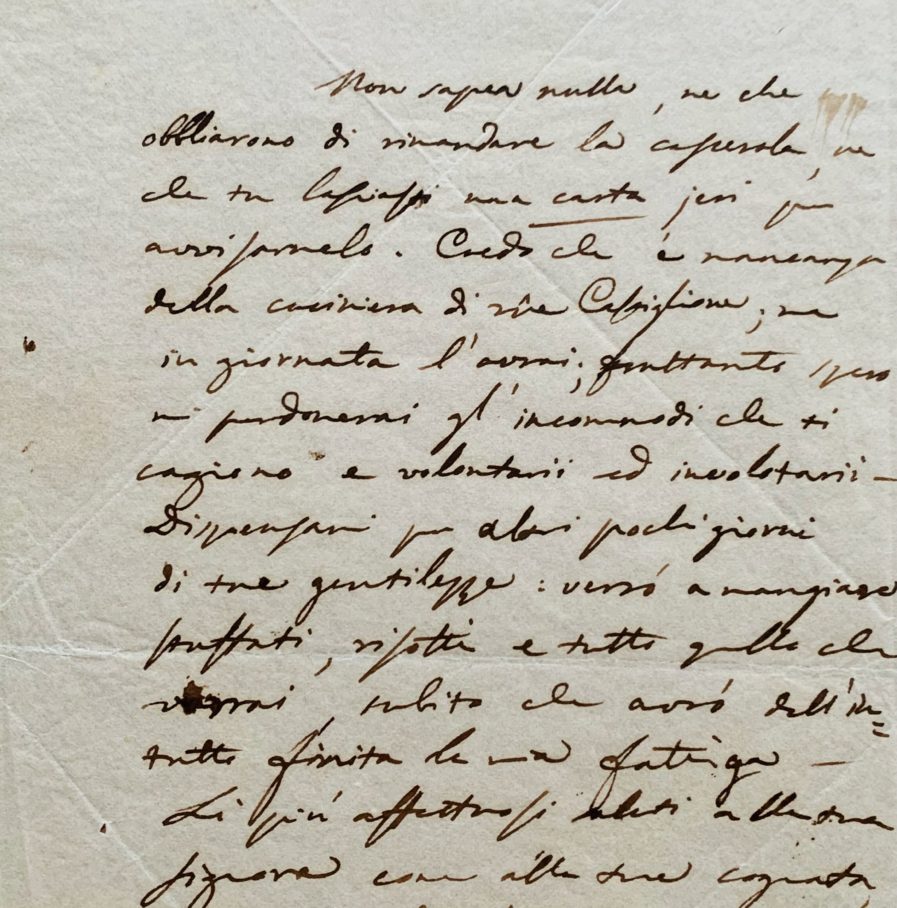 Non sapea nulla, ne che
obbliarono di rimandare la casserola, ne
che tu lasciasti una carta jeri per
avvisarmelo. Credo che è mancanza
della cuciniera di rue Castiglione; ma
in giornata l'avrai; frattanto spero
mi perdonerai gl'incommodi che ti
cagiono e volontarii ed involotarii —
Dispensami per altri pochi giorni
di tue gentilezze: verró a mangiare
stuffati, risotti e tutto quello che
vorrai, subito che avró dell'in=
tutto finita la mia fatiga —
Li piú affettuosi saluti alla tua
signora come alla tua cognata,